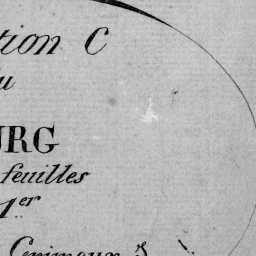 tion C
u
URG
feuilles
1er